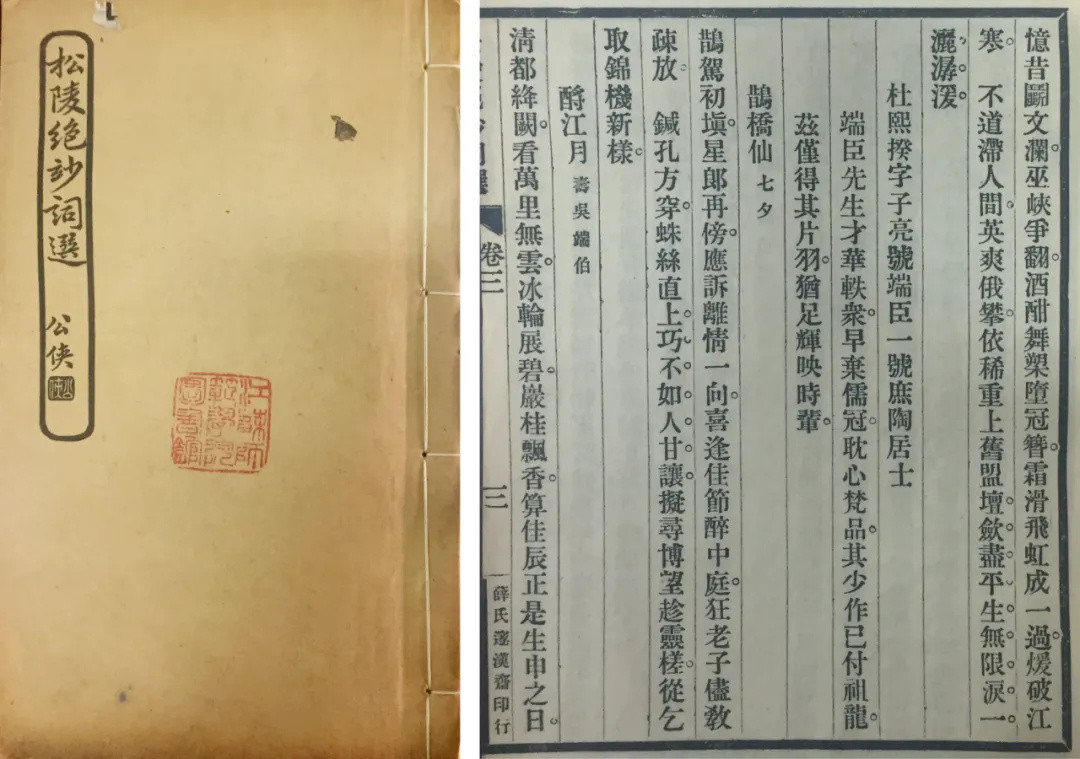 松陵絕妙詞選
公俠
江蘇師範學院圖書館
憶昔鬭文瀾巫峽爭翻酒酣舞槊墮冠簪霜滑飛虹成一過煖破江
寒　不道滯人間英爽俄攀依稀重上舊盟壇歛盡平生無限淚一
灑潺湲
杜熙揆字子亮號端臣一號庶陶居士
端臣先生才華軼衆早棄儒冠耽心梵品其少作已付祖龍
茲僅得其片羽猶足輝映時輩
鵲橋仙 七夕
鵲駕初塡星郞再傍應訴離情一向喜逢佳節醉中庭狂老子儘敎
疎放　鍼孔方穿蛛絲直上巧不如人甘讓擬尋博望趁靈槎從乞
取錦機新樣
酹江月 壽吳端伯
淸都絳闕看萬里無雲冰輪展碧巖桂飄香算佳辰正是生申之日
選
卷三
三
薛氏邃漢齋印行